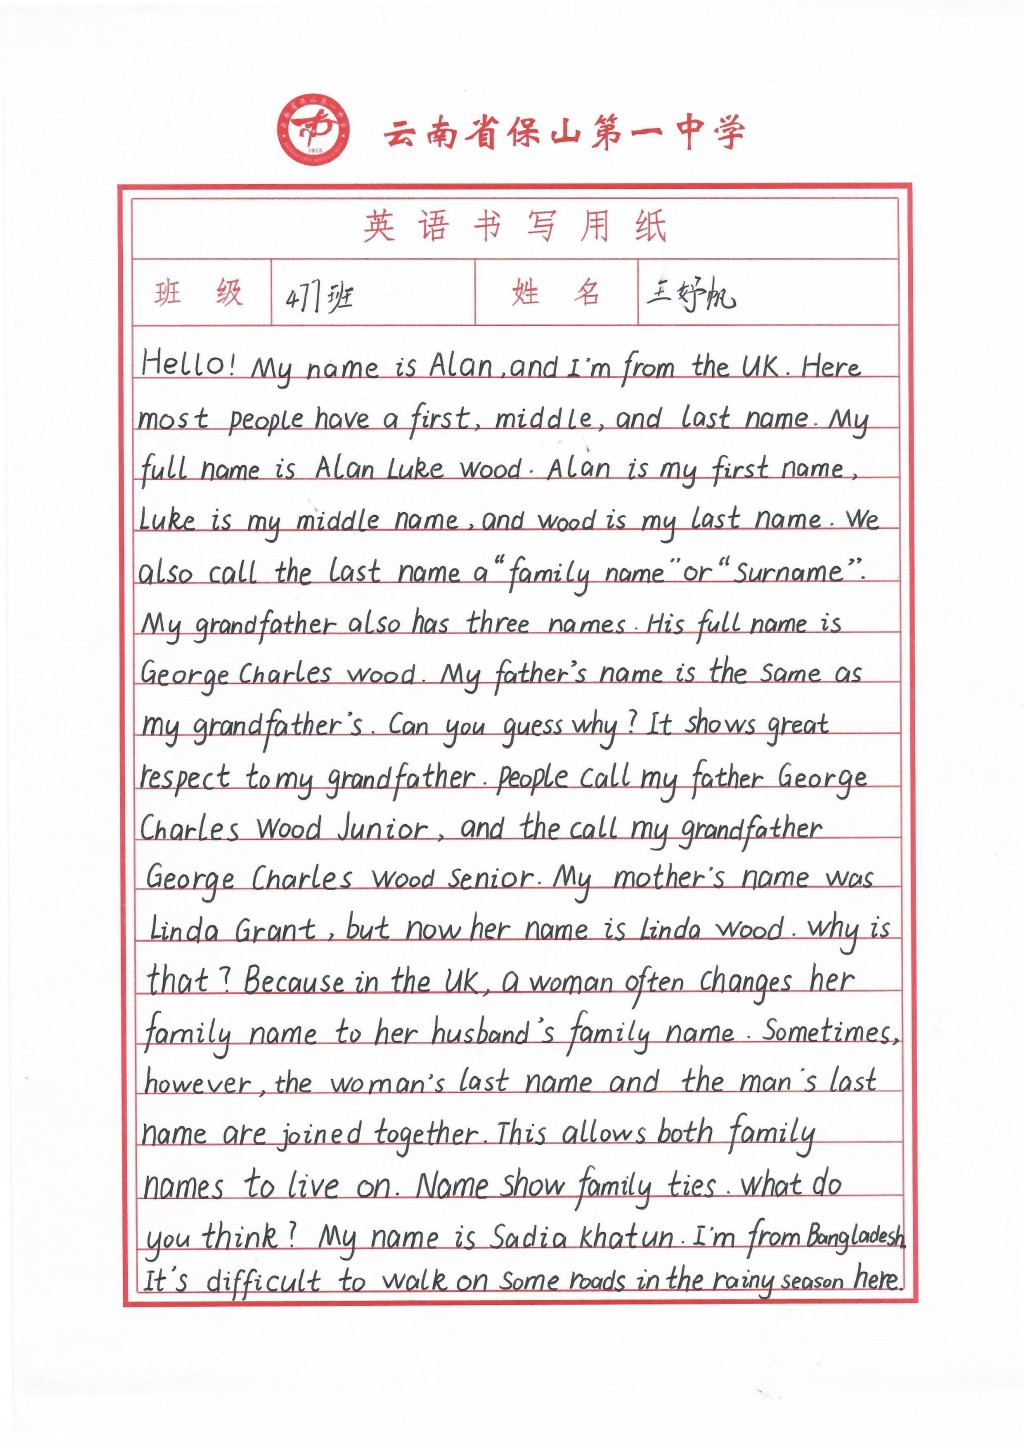 云南省保山第一中学
英语书写用纸
班 级 477班 姓 名 王妤帆
Hello! My name is Alan, and I'm from the UK. Here
most people have a first, middle, and last name. My
full name is Alan Luke Wood. Alan is my first name,
Luke is my middle name, and wood is my last name. We
also call the last name a "family name" or "Surname".
My grandfather also has three names. His full name is
George Charles wood. My father's name is the same as
my grandfather's. Can you guess why? It shows great
respect to my grandfather. People call my father George
Charles Wood Junior, and the call my grandfather
George Charles Wood Senior. My mother's name was
Linda Grant, but now her name is Linda Wood. Why is
that? Because in the UK, a woman often changes her
family name to her husband's family name. Sometimes,
however, the woman's last name and the man's last
name are joined together. This allows both family
names to live on. Name show family ties. What do
you think? My name is Sadia Khatun. I'm from Bangladesh.
It's difficult to walk on some roads in the rainy season here.